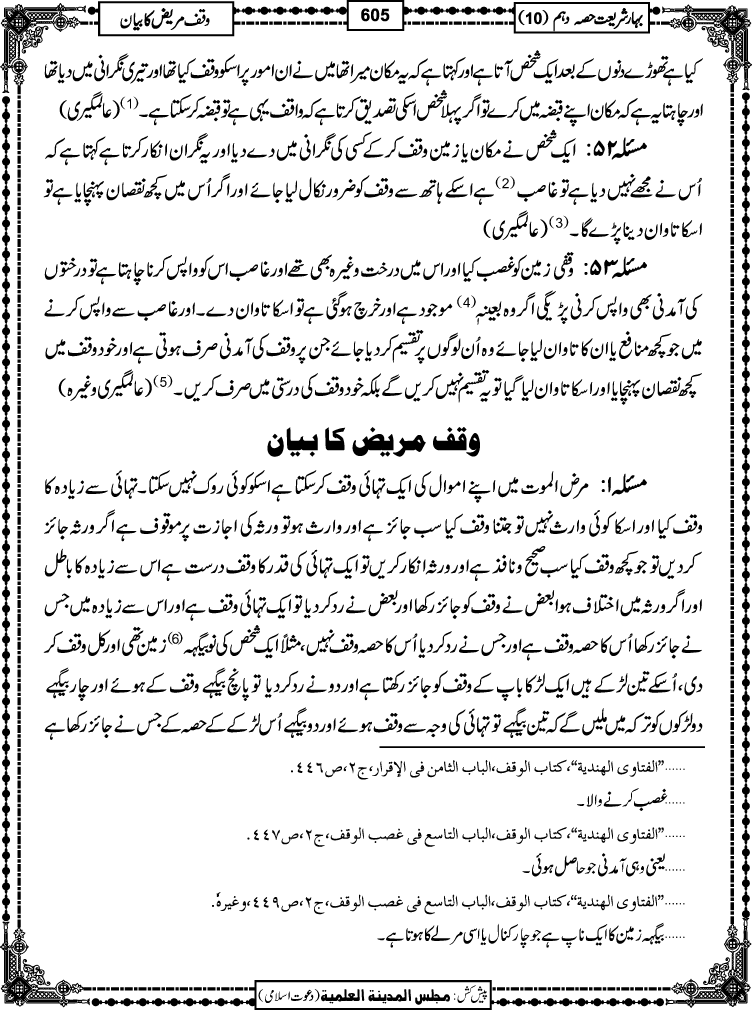 بہار شریعت حصہ دہم (10)
605
وقف مریض کا بیان
کیا ہے تھوڑے دنوں کے بعد ایک شخص آتا ہے اور کہتا ہے کہ یہ مکان میرا تھا میں نے ان امور پر اسکو وقف کیا تھا اور تیری نگرانی میں دیا تھا
اور چاہتا یہ ہے کہ مکان اپنے قبضہ میں کرے تو اگر پہلا شخص اسکی تصدیق کرتا ہے کہ واقف یہی ہے تو قبضہ کرسکتا ہے۔(1) (عالمگیری)
مسئلہ ۵۲: ایک شخص نے مکان یا زمین وقف کرکے کسی کی نگرانی میں دے دیا اور یہ نگران انکار کرتا ہے کہتا ہے کہ
اُس نے مجھے نہیں دیا ہے تو غاصب (2) ہے اسکے ہاتھ سے وقف کو ضرور نکال لیا جائے اور اگر اُس میں کچھ نقصان پہنچایا ہے تو
اسکا تاوان دینا پڑے گا۔(3) (عالمگیری)
مسئلہ ۵۳: وقفی زمین کو غصب کیا اور اس میں درخت وغیرہ بھی تھے اور غاصب اس کو واپس کرنا چاہتا ہے تو درختوں
کی آمدنی بھی واپس کرنی پڑیگی اگر وہ بعینہٖ (4) موجود ہے اور خرچ ہوگئی ہے تو اسکا تاوان دے۔ اور غاصب سے واپس کرنے
میں جو کچھ منافع یا ان کا تاوان لیا جائے وہ اُن لوگوں پر تقسیم کردیا جائے جن پر وقف کی آمدنی صرف ہوتی ہے اور خود وقف میں
کچھ نقصان پہنچایا اور اسکا تاوان لیا گیا تو یہ تقسیم نہیں کریں گے بلکہ خود وقف کی درستی میں صرف کریں۔(5) (عالمگیری وغیرہ)
وقف مریض کا بیان
مسئلہ ۱: مرض الموت میں اپنے اموال کی ایک تہائی وقف کرسکتا ہے اسکو کوئی روک نہیں سکتا۔ تہائی سے زیادہ کا
وقف کیا اور اسکا کوئی وارث نہیں تو جتنا وقف کیا سب جائز ہے اور وارث ہو تو ورثہ کی اجازت پر موقوف ہے اگر ورثہ جائز
کردیں تو جو کچھ وقف کیا سب صحیح و نافذ ہے اور ورثہ انکار کریں تو ایک تہائی کی قدر کا وقف درست ہے اس سے زیادہ کا باطل
اور اگر ورثہ میں اختلاف ہوا بعض نے وقف کو جائز رکھا اور بعض نے رد کردیا تو ایک تہائی وقف ہے اور اس سے زیادہ میں جس
نے جائز رکھا اُس کا حصہ وقف ہے اور جس نے رد کردیا اُس کا حصہ وقف نہیں، مثلاً ایک شخص کی نو بیگہہ (6) زمین تھی اور کل وقف کر
دی، اُسکے تین لڑکے ہیں ایک لڑکا باپ کے وقف کو جائز رکھتا ہے اور دو نے رد کردیا تو پانچ بیگہے وقف کے ہوئے اور چار بیگہے
دو لڑکوں کو ترکہ میں ملیں گے کہ تین بیگہے تو تہائی کی وجہ سے وقف ہوئے اور دو بیگہے اُس لڑکے کے حصہ کے جس نے جائز رکھا ہے
......"الفتاوی الهندية"، کتاب الوقف، الباب الثامن فی الإقرار، ج۲، ص۴۴۶.
......غصب کرنے والا۔
......"الفتاوی الهندية"، کتاب الوقف، الباب التاسع فی غصب الوقف، ج۲، ص۴۴۷.
......یعنی وہی آمدنی جو حاصل ہوئی۔
......"الفتاوی الهندية"، کتاب الوقف، الباب التاسع فی غصب الوقف، ج۲، ص۴۴۹، وغیرہٗ.
......بیگہہ زمین کا ایک ناپ ہے جو چار کنال یا اسی مرلے کا ہوتا ہے۔
پیش کش: مجلس المدینة العلمیة (دعوت اسلامی)